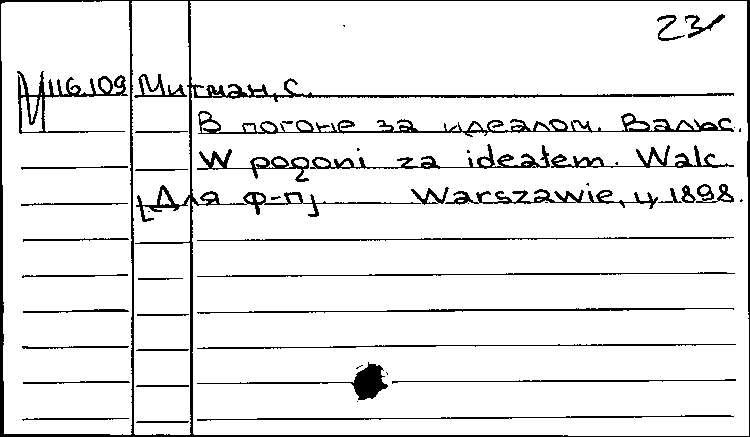 23
М 116.109 Митман, С.
В погоне за идеалом. Вальс.
W pogoni za ideałem. Walc.
[Для ф-п] Warszawie, ц. 1898.